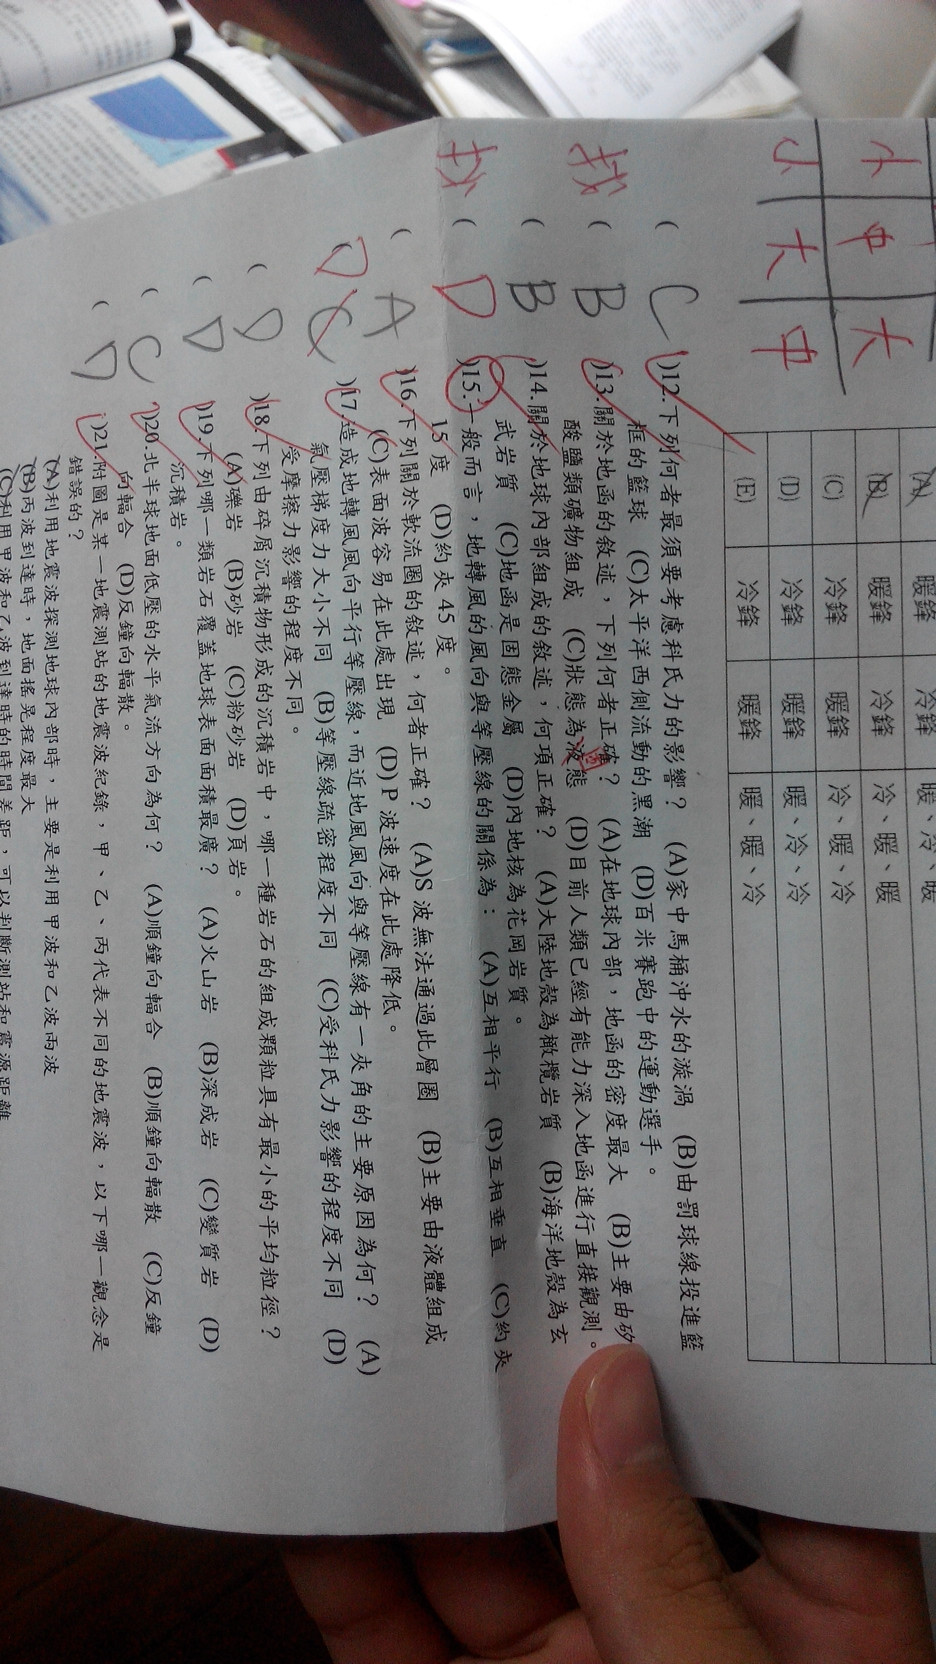 小 中 大
小 大 中
(A) 暖鋒 冷鋒 暖、冷、暖
(B) 暖鋒 冷鋒 冷、暖、暖
(C) 冷鋒 暖鋒 冷、暖、冷
(D) 冷鋒 暖鋒 暖、冷、冷
(E) 冷鋒 暖鋒 暖、暖、冷
( C )12.下列何者最須要考慮科氏力的影響? (A)家中馬桶沖水的漩渦 (B)由罰球線投進籃
框的籃球 (C)太平洋西側流動的黑潮 (D)百米賽跑中的運動選手。
找 ( B )13.關於地函的敘述,下列何者正確? (A)在地球內部,地函的密度最大 (B)主要由矽
酸鹽類礦物組成 (C)狀態為液態 (D)目前人類已經有能力深入地函進行直接觀測。
( B )14.關於地球內部組成的敘述,何項正確? (A)大陸地殼為橄欖岩質 (B)海洋地殼為玄
武岩質 (C)地函是固態金屬 (D)內地核為花岡岩質。
找 ( D )15.一般而言,地轉風的風向與等壓線的關係為: (A)互相平行 (B)互相垂直 (C)約夾
15度 (D)約夾45度。
( A )16.下列關於軟流圈的敘述,何者正確? (A)S波無法通過此層圈 (B)主要由液體組成
(C)表面波容易在此處出現 (D)P波速度在此處降低。
D ( C )17.造成地轉風風向平行等壓線,而近地風風向與等壓線有一夾角的主要原因為何? (A)
氣壓梯度力大小不同 (B)等壓線疏密程度不同 (C)受科氏力影響的程度不同 (D)
受摩擦力影響的程度不同。
( D )18.下列由碎屑沉積物形成的沉積岩中,哪一種岩石的組成顆粒具有最小的平均粒徑?
(A)礫岩 (B)砂岩 (C)粉砂岩 (D)頁岩。
( D )19.下列哪一類岩石覆蓋地球表面面積最廣? (A)火山岩 (B)深成岩 (C)變質岩 (D)
沉積岩。
( C )20.北半球地面低壓的水平氣流方向為何? (A)順鐘向輻合 (B)順鐘向輻散 (C)反鐘
向輻合 (D)反鐘向輻散。
( D )21.附圖是某一地震測站的地震波紀錄,甲、乙、丙代表不同的地震波,以下哪一觀念是
錯誤的?
(A)利用地震波探測地球內部時,主要是利用甲波和乙波兩波
(B)丙波到達時,地面搖晃程度最大
(C)利用甲波和乙波到達時的時間差距,可以判斷測站和震源距離